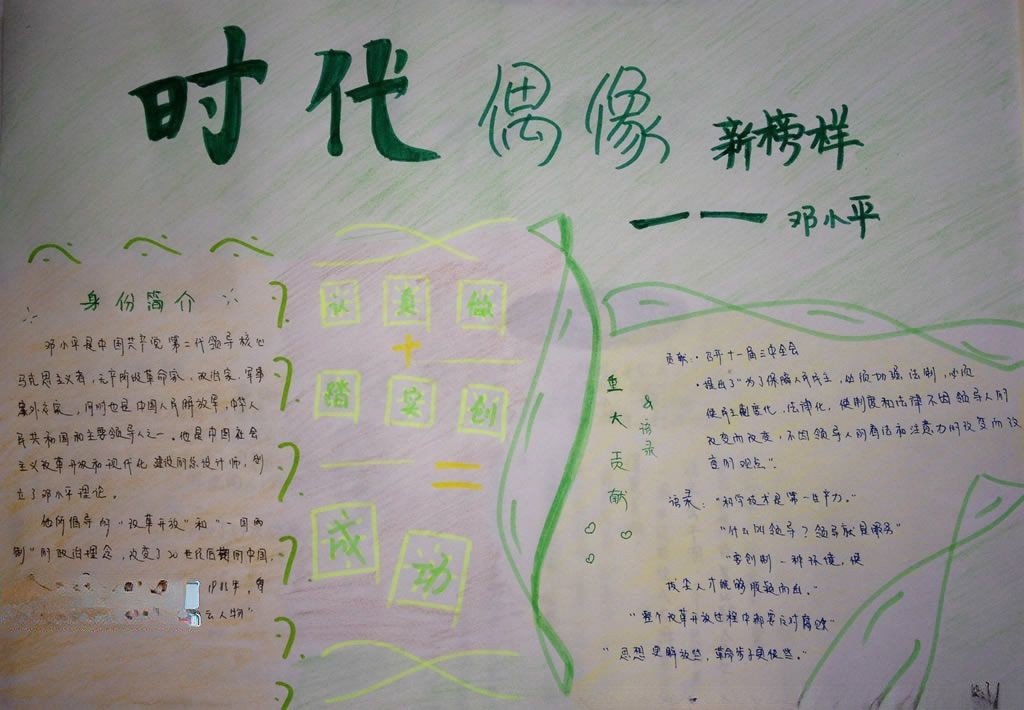 时代偶像 新榜样
——邓小平
身份简介
邓小平是中国共产党第二代领导核心
马克思主义者，无产阶级革命家，政治家，军事
家外交家，同时也是中国人民解放军，中华人
民共和国的主要领导人之一。他是中国社会
主义改革开放和现代化建设的总设计师，创
立了邓小平理论。
他所倡导的“改革开放”和“一国两
制”的政治理念，改变了20世纪后期的中国，
1985年，
云人物”
认真做
+
踏实创
=
成功
重大贡献
&语录
贡献：·召开十一届三中全会
·提出了“为了保障人民民主，必须加强法制，必须
使民主制度化，法律化，使制度和法律不因领导人的
改变而改变，不因领导人的看法和注意力的改变而改
变的观点”.
语录：“科学技术是第一生产力。”
“什么叫领导？领导就是服务”
“要创制一种环境，使
拔尖人才能够脱颖而出。”
“整个改革开放过程中都要反对腐败”
“思想更解放些，革命步子更快些。”